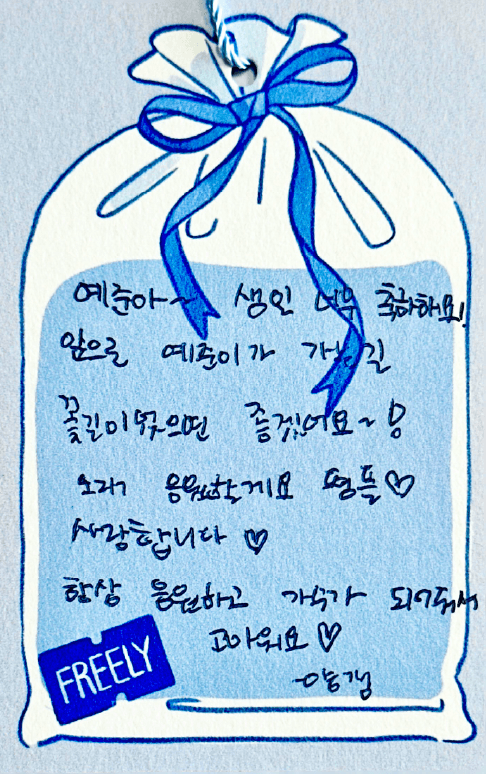 예준아~ 생일 너무 축하해요!
앞으로 예준이가 가는 길
꽃길이었으면 좋겠어요~!
오래 응원할게요 평플♡
사랑합니다 ♡
항상 응원하고 가수가 되어줘서
고마워요 ♡
FREELY